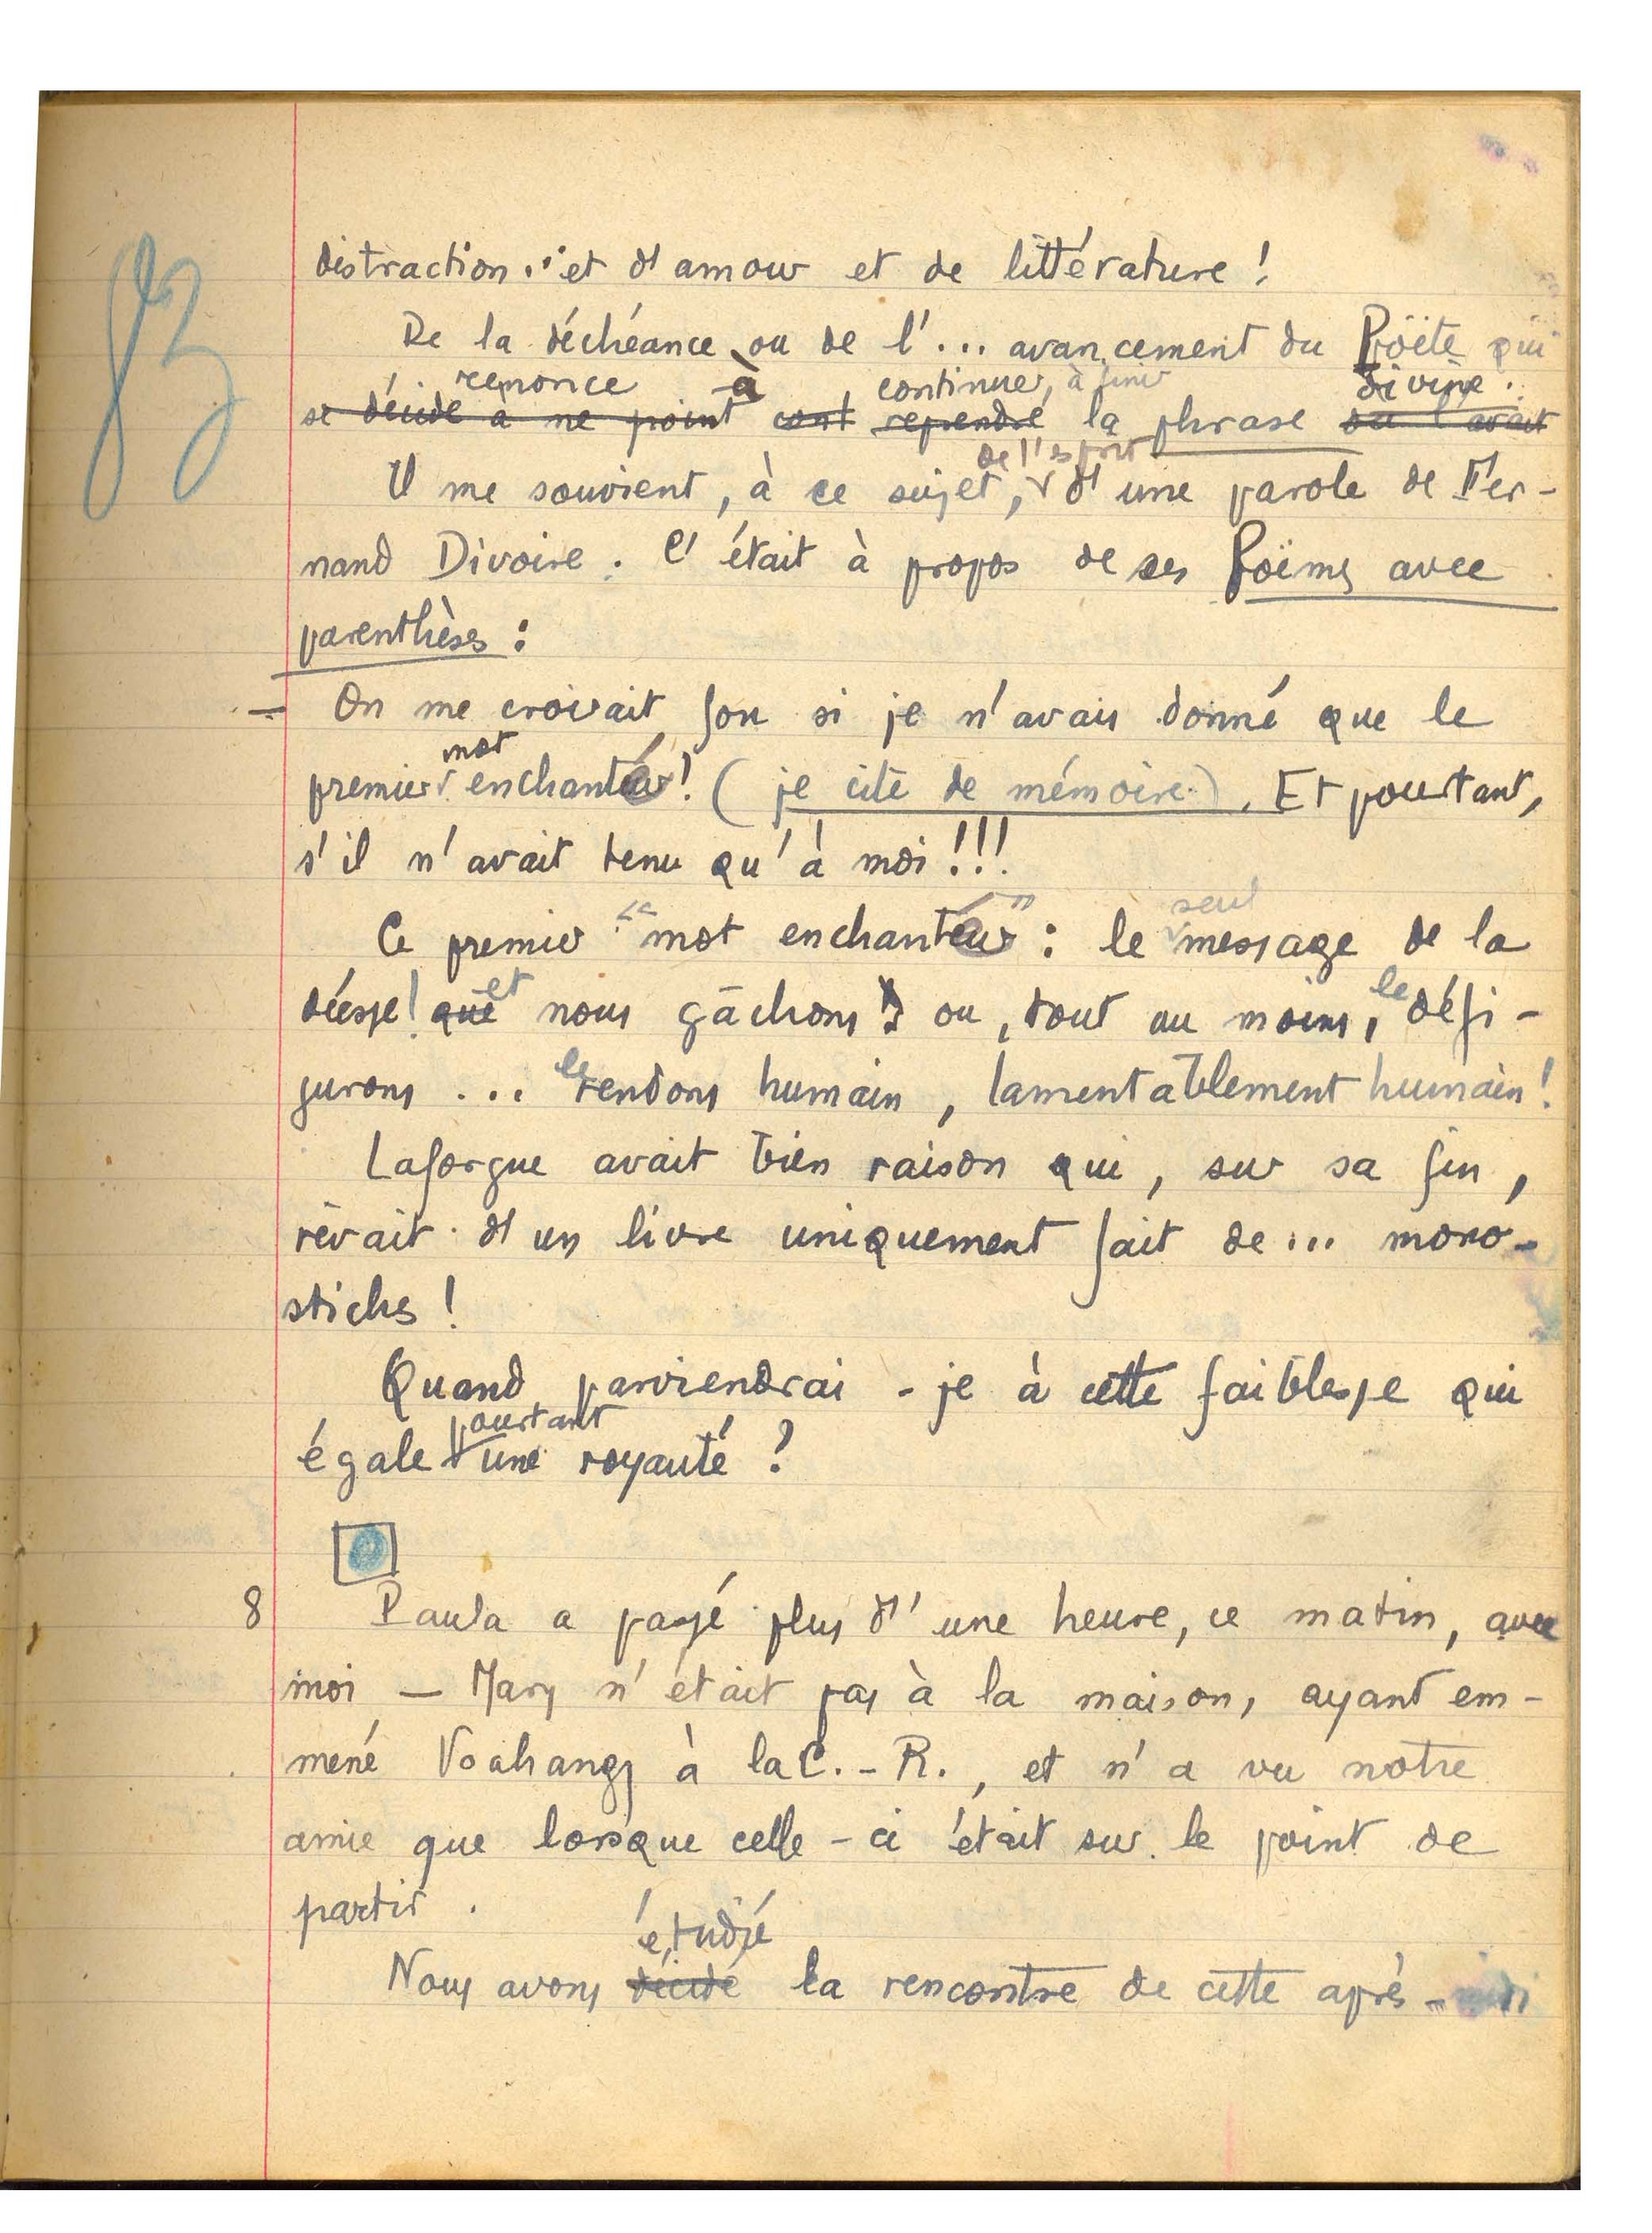 83
distraction... et d'amour et de littérature !
De la déchéance ou de l'... avancement du Poëte qui
renonce à continuer, à finir divine.
se décide à ne point cont reprendre la phrase
de l'esprit
Il me souvient, à ce sujet, d'une parole de Fer-
nand Divoire. C'était à propos de ses Poëmes avec
parenthèses :
— On me croirait fou si je n'avais donné que le
mot
premier enchanté ! (je cite de mémoire). Et pourtant,
s'il n'avait tenu qu'à moi !!!
seul
Ce premier "mot enchanté" : le message de la
et le
déesse ! que nous gâchons ou, tout au moins, défi-
le
gurons ... rendons humain, lamentablement humain !
Laforgue avait bien raison qui, sur sa fin,
rêvait d'un livre uniquement fait de... mono-
stiches !
Quand parviendrai-je à cette faiblesse qui
pourtant
égale une royauté ?
8 Paula a passé plus d'une heure, ce matin, avec
moi — Mary n'était pas à la maison, ayant em-
mené Voahangy à la C.-R., et n'a vu notre
amie que lorsque celle-ci était sur le point de
partir.
étudié
Nous avons décidé la rencontre de cette après-midi